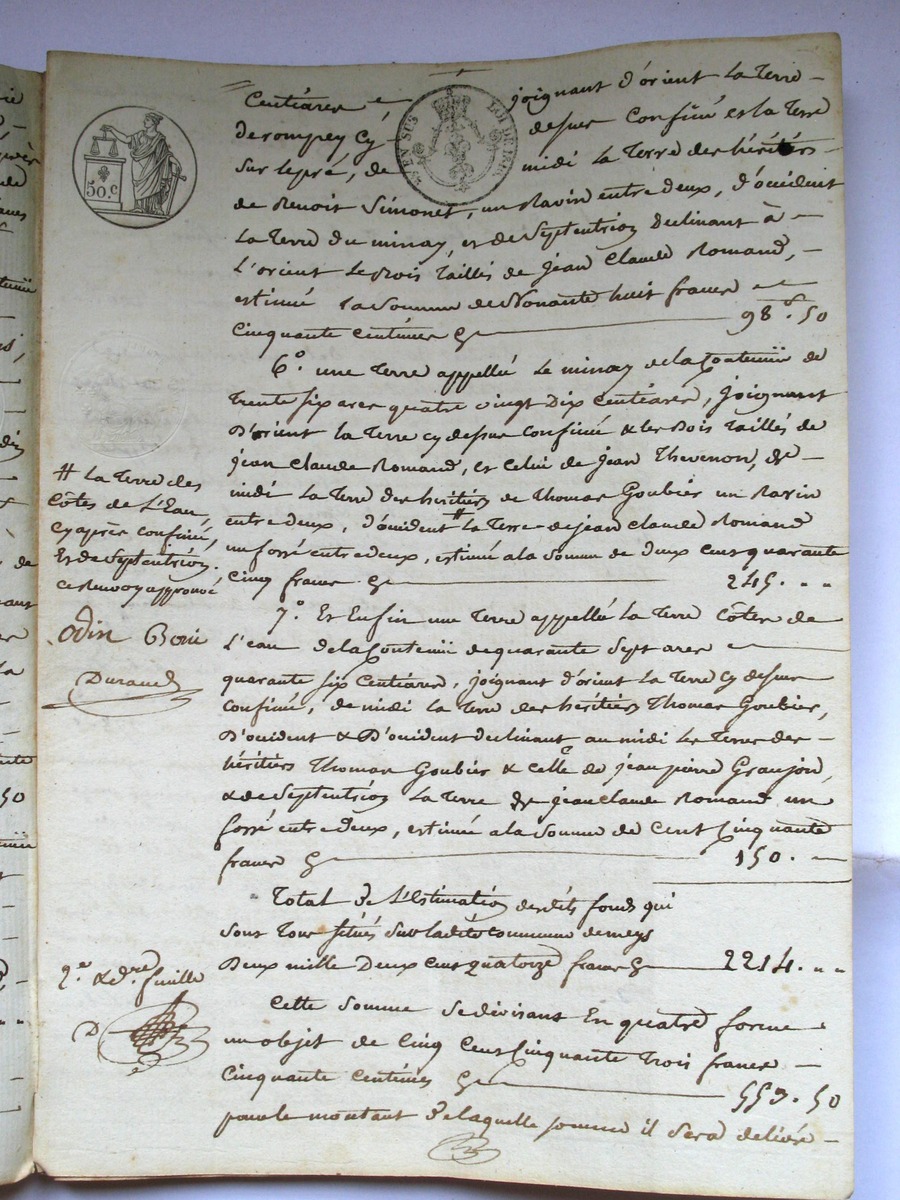 50.c
EN SUS
LOI DE 1816
centiares joignant d'orient la Terre
de rompey cy dessus confiné est la Terre
sur le pré, de midi la Terre des héritiers
de Benoit Simonet, un Ravin entre deux, d'occident
La Terre du minay, et de Septentrion declinant à
L'orient Le Bois Taillis de jean Claude Romand,
estimée la Somme de Nonante huit francs
cinquante centimes 98 f. 50
6.o une Terre appellée Le minay de la Contenue de
Trente six ares quatre vingt Dix centiares, joignant
D'orient la Terre cy dessus confiné & les Bois Taillés de
jean Claude Romand, et celui de jean Thevenon, de
midi La Terre des héritiers de Thomas Goubier un Ravin
entre deux, d'occident # la Terre de jean Claude Romand
un fossé entre deux, estimée a la Somme de deux cens quarante
cinq francs 245. " "
7.o Et Enfin une Terre appellée La Terre Côtes de
L'eau de la Contenue de quarante Sept ares
quarante six centiares, joignant d'orient La Terre cy dessus
confiné, de midi la Terre des héritiers Thomas Goubier,
D'occident & D'occident declinant au midi les Terres des
héritiers Thomas Goubier & celle de jean pierre Granjon,
& de Septentrion La Terre de jean Claude Romand un
fossé entre deux, estimée a la Somme de Cent Cinquante
francs 150. "
Total de L'Estimation desdits fonds qui
sont Tous situés Sur la dite commune de meys
Deux mille Deux cens quatorze francs 2214. " "
Cette Somme Se divisant En quatre forme
un objet de Cinq Cens Cinquante Trois francs
cinquante centimes 553. 50
pour le montant de laquelle somme il Sera délivré
# La Terre des
Côtes de L'Eau,
cy après confiné,
Et de Septentrion.
ce Renvoy approuvé
Odin
Durand
2.e & d.re feuille
D